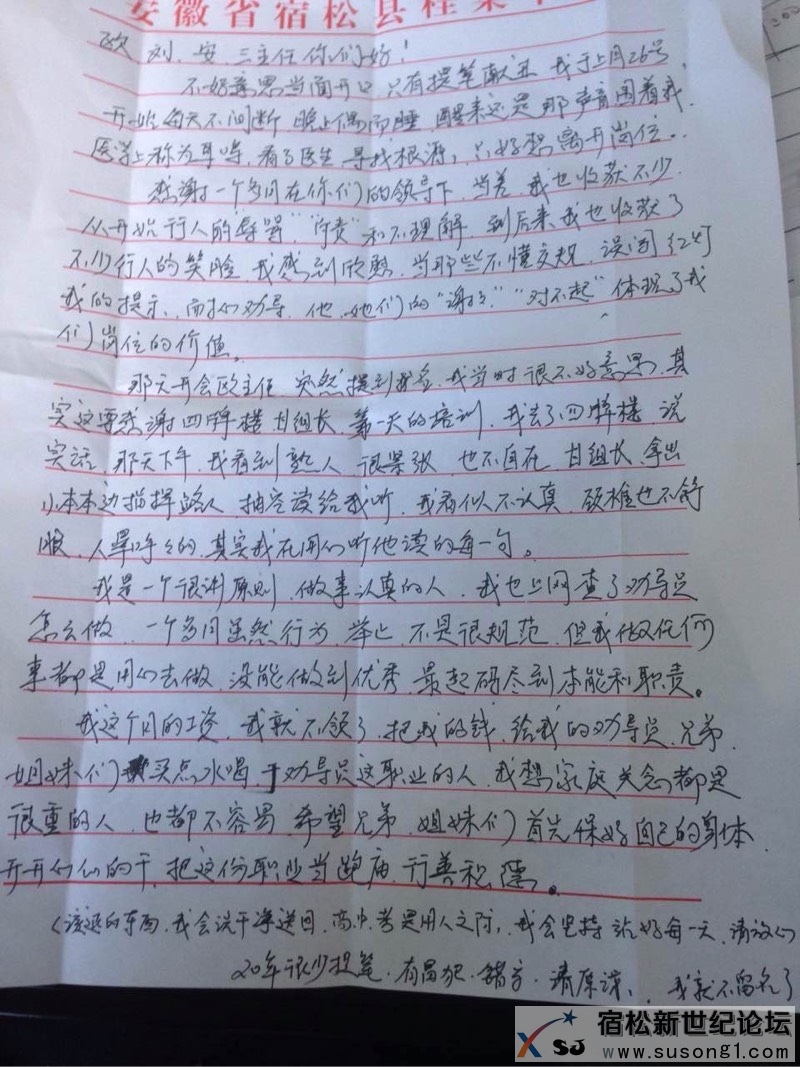 安徽省宿松县桂集
欧、刘、安、三主任你们好！
不好意思当面开口，只有提笔献丑，我于上月26号
开始每天不间断，晚上偶而睡，醒来还是那声音围着我，
医学上称为耳鸣，看了医生，寻找根源，只好想离开岗位。
感谢一个多月在你们的领导下，当差，我也收获不少，
从开始行人的辱骂""责"和不理解，到后来我也收获了
不少行人的笑脸，我感到欣慰，当那些不懂交规，误闯红灯
我的提示，而我们劝导，他、她们的"谢谢""对不起"体现了我
们岗位的价值。
那天开会欧主任 突然提到我名，我当时很不好意思，其
实这要感谢四牌楼 甘组长，第一天的培训，我去了四牌楼，说
实话，那天下午，我看到熟人，很紧张，也不自在，甘组长，拿出
小本本边指挥路人，抽空读给我听，我看似不认真，颈椎也不舒
服，人晕哗哗的，其实我在用心听他读的每一句。
我是一个很讲原则，做事认真的人，我也上网查了劝导员
怎么做，一个多月虽然行为，举止，不是很规范，但我做任何
事都是用心去做，没能做到优秀，最起码尽到本能和职责。
我这个月的工资，我就不领了，把我的钱，给我的劝导员，兄弟，
姐妹们买点水喝，干劝导员这职业的人，我想家庭关念都是
很重的人，也都不容易，希望兄弟，姐妹们首先保好自己的身体，
开开心心的干，把这份职业当跑庙，行善积德。
（该退的东西，我会洗干净送回，高中考是用人之际，我会坚持站好每一天，请放心
20年很少提笔，有冒犯，错方，请原谅，，我就不留名了
宿松新世纪论坛
XSJ
www.susong1.com